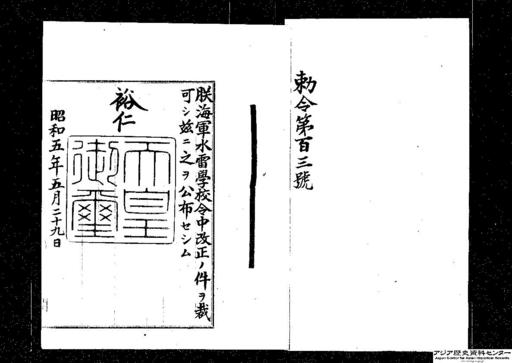 勅令第百三號
朕海軍水雷學校令中改正ノ件ヲ裁
可シ茲ニ之ヲ公布セシム
裕仁
天皇御璽
昭和五年五月二十九日
アジア歴史資料センター
Japan Center for Asian Historical Records